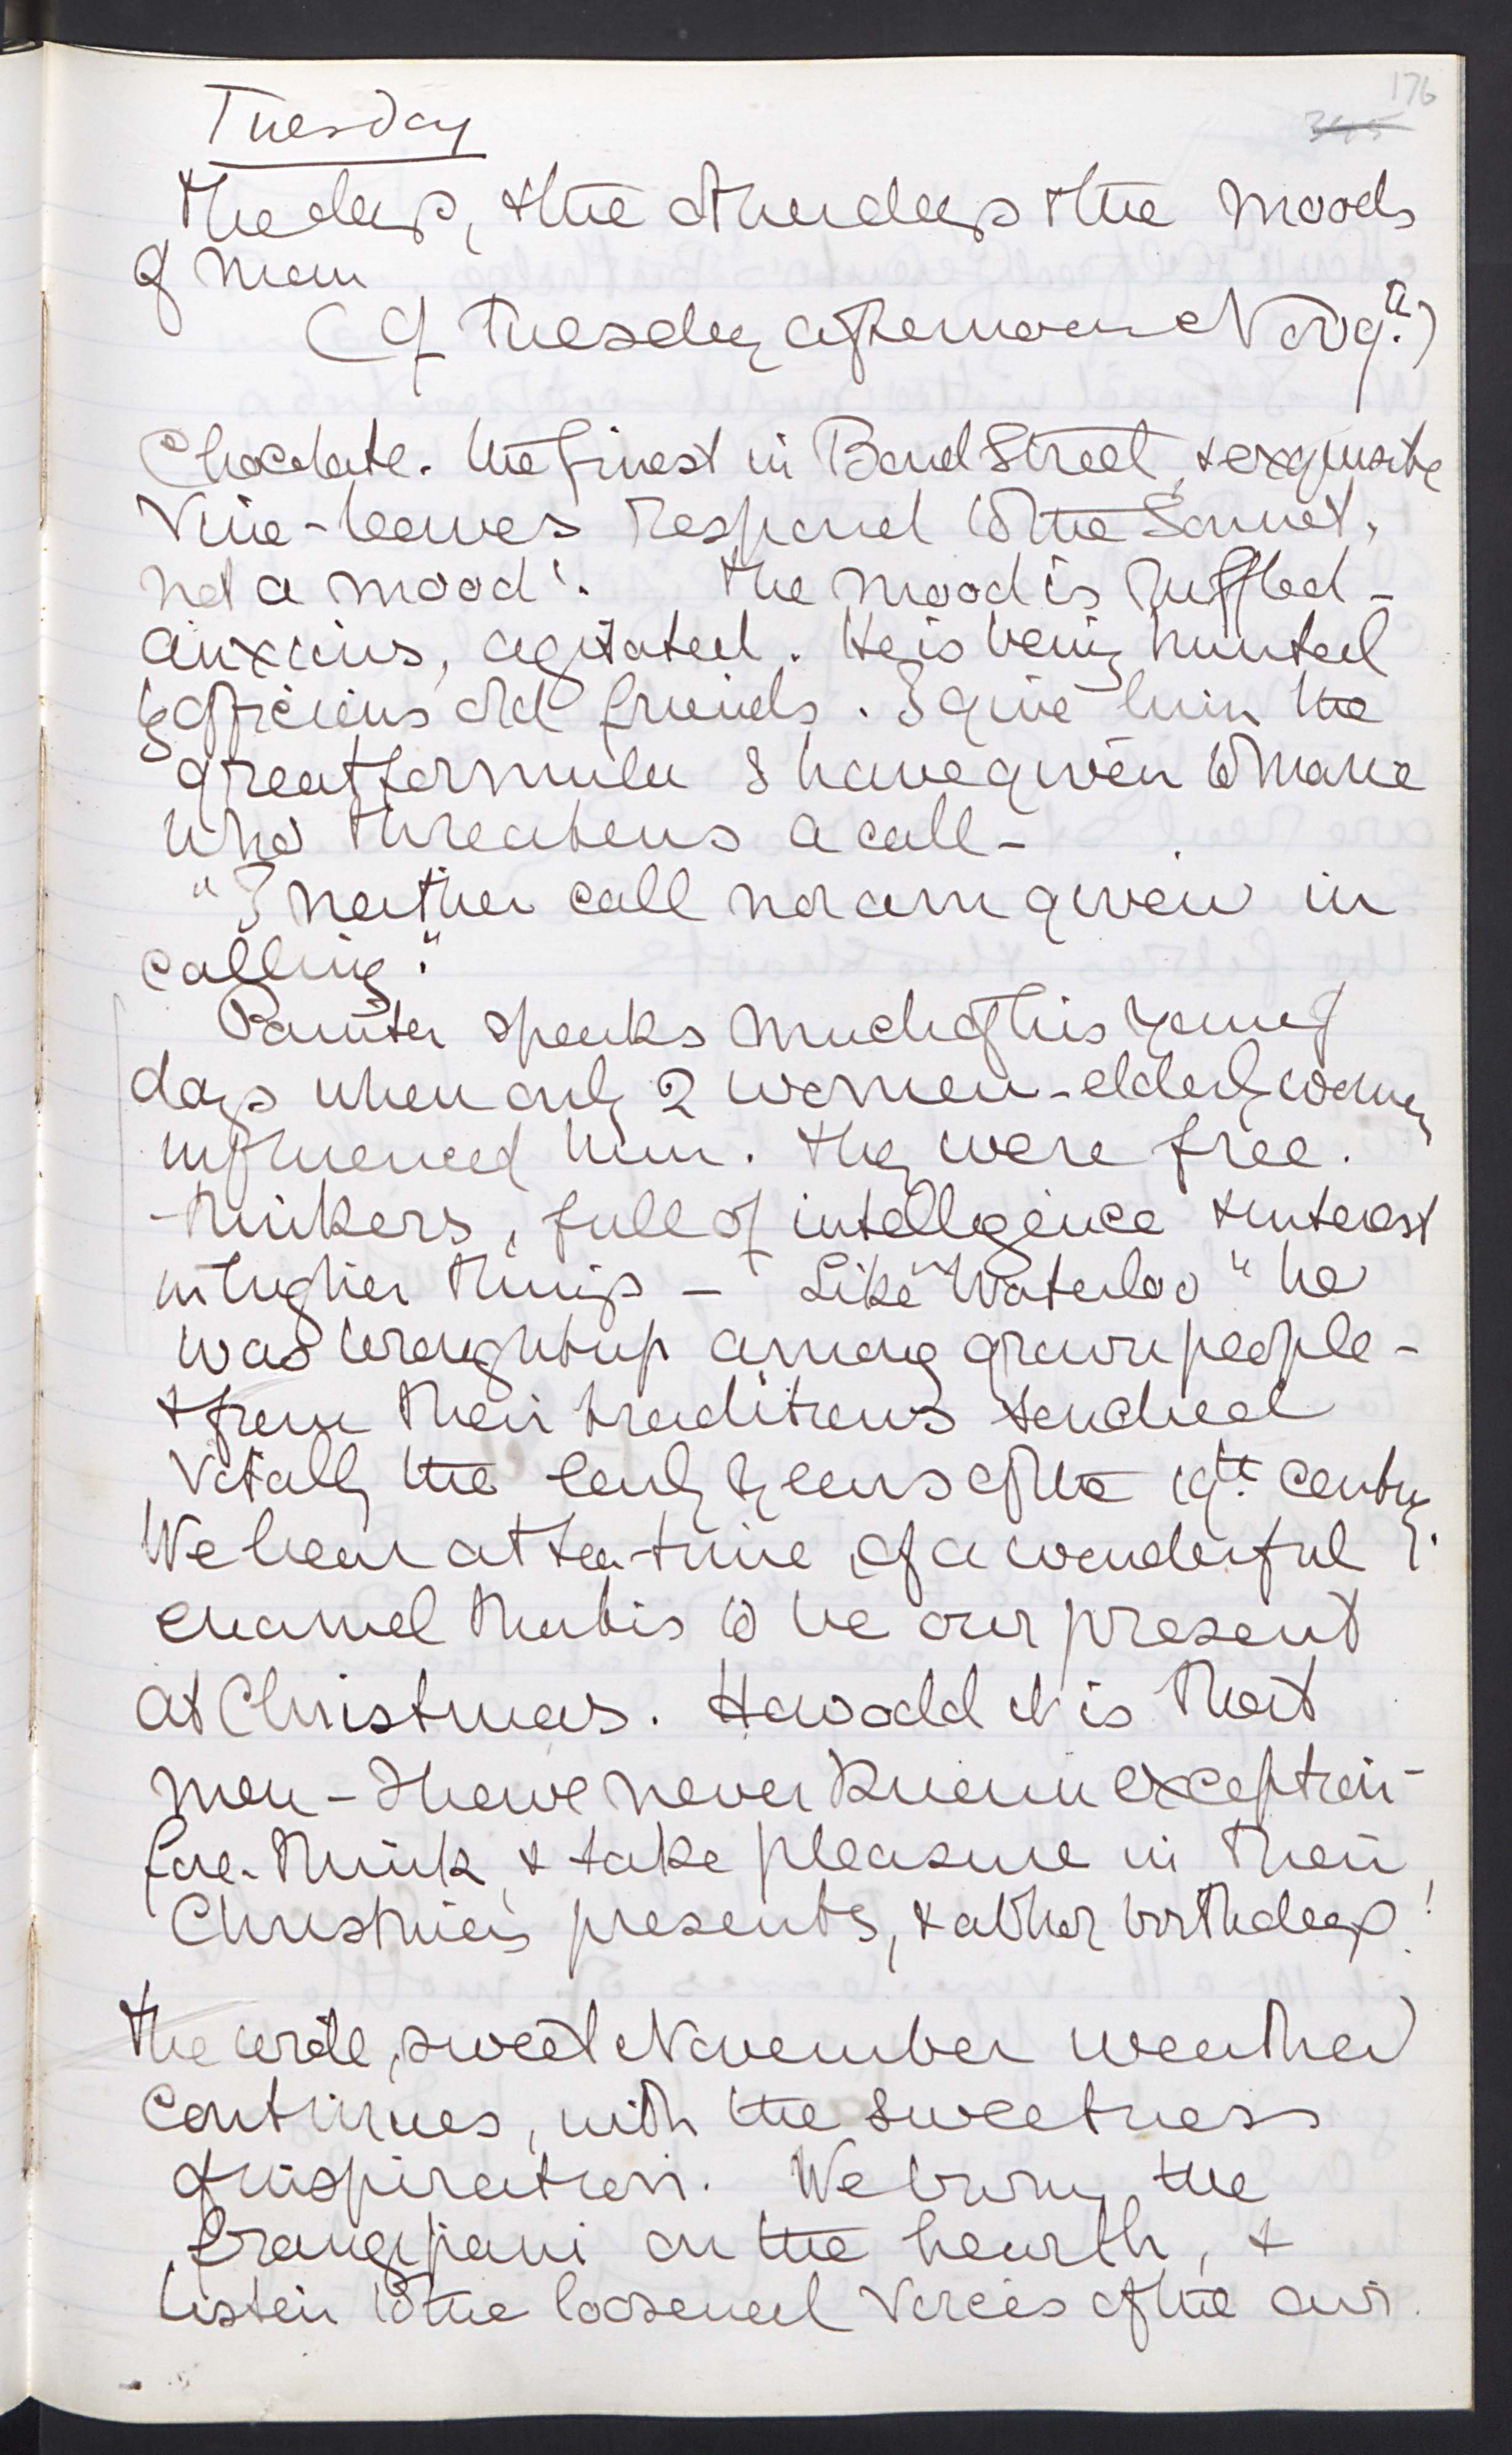 176
345
Tuesday
The days, & the other days & the moods
of man
(Of Tuesday afternoon Nov 9th.)
Chocolate. the finest in Bond Street, & exquisite
Vine-leaves respond to the Sonnet,
not a mood! The mood is ruffled -
anxious, agitated. He is being hunted
by officious old friends. I give him the
great formula I have given to Marie
who threatens a call -
"I neither call nor am given in
calling."
Painter speaks much of his young
days when only 2 women - elderly women
influenced him. They were free.
-thinkers, full of intelligence & interest
in higher things - Like "Waterloo" he
was brought up among grown people -
& from their traditions touched
vitally the early years of the 19th. century.
We hear at tea-time, of a wonderful
enamel that is to be our present
at Christmas. How odd it is that
men - I have never known exception -
fore-think & take pleasure in their
Christmas presents, & abhor birthdays!
The wide, sweet November weather
continues, with the sweetness
of inspiration. We burn the
frangipani on the hearth, &
listen to the loosened voices of the air.